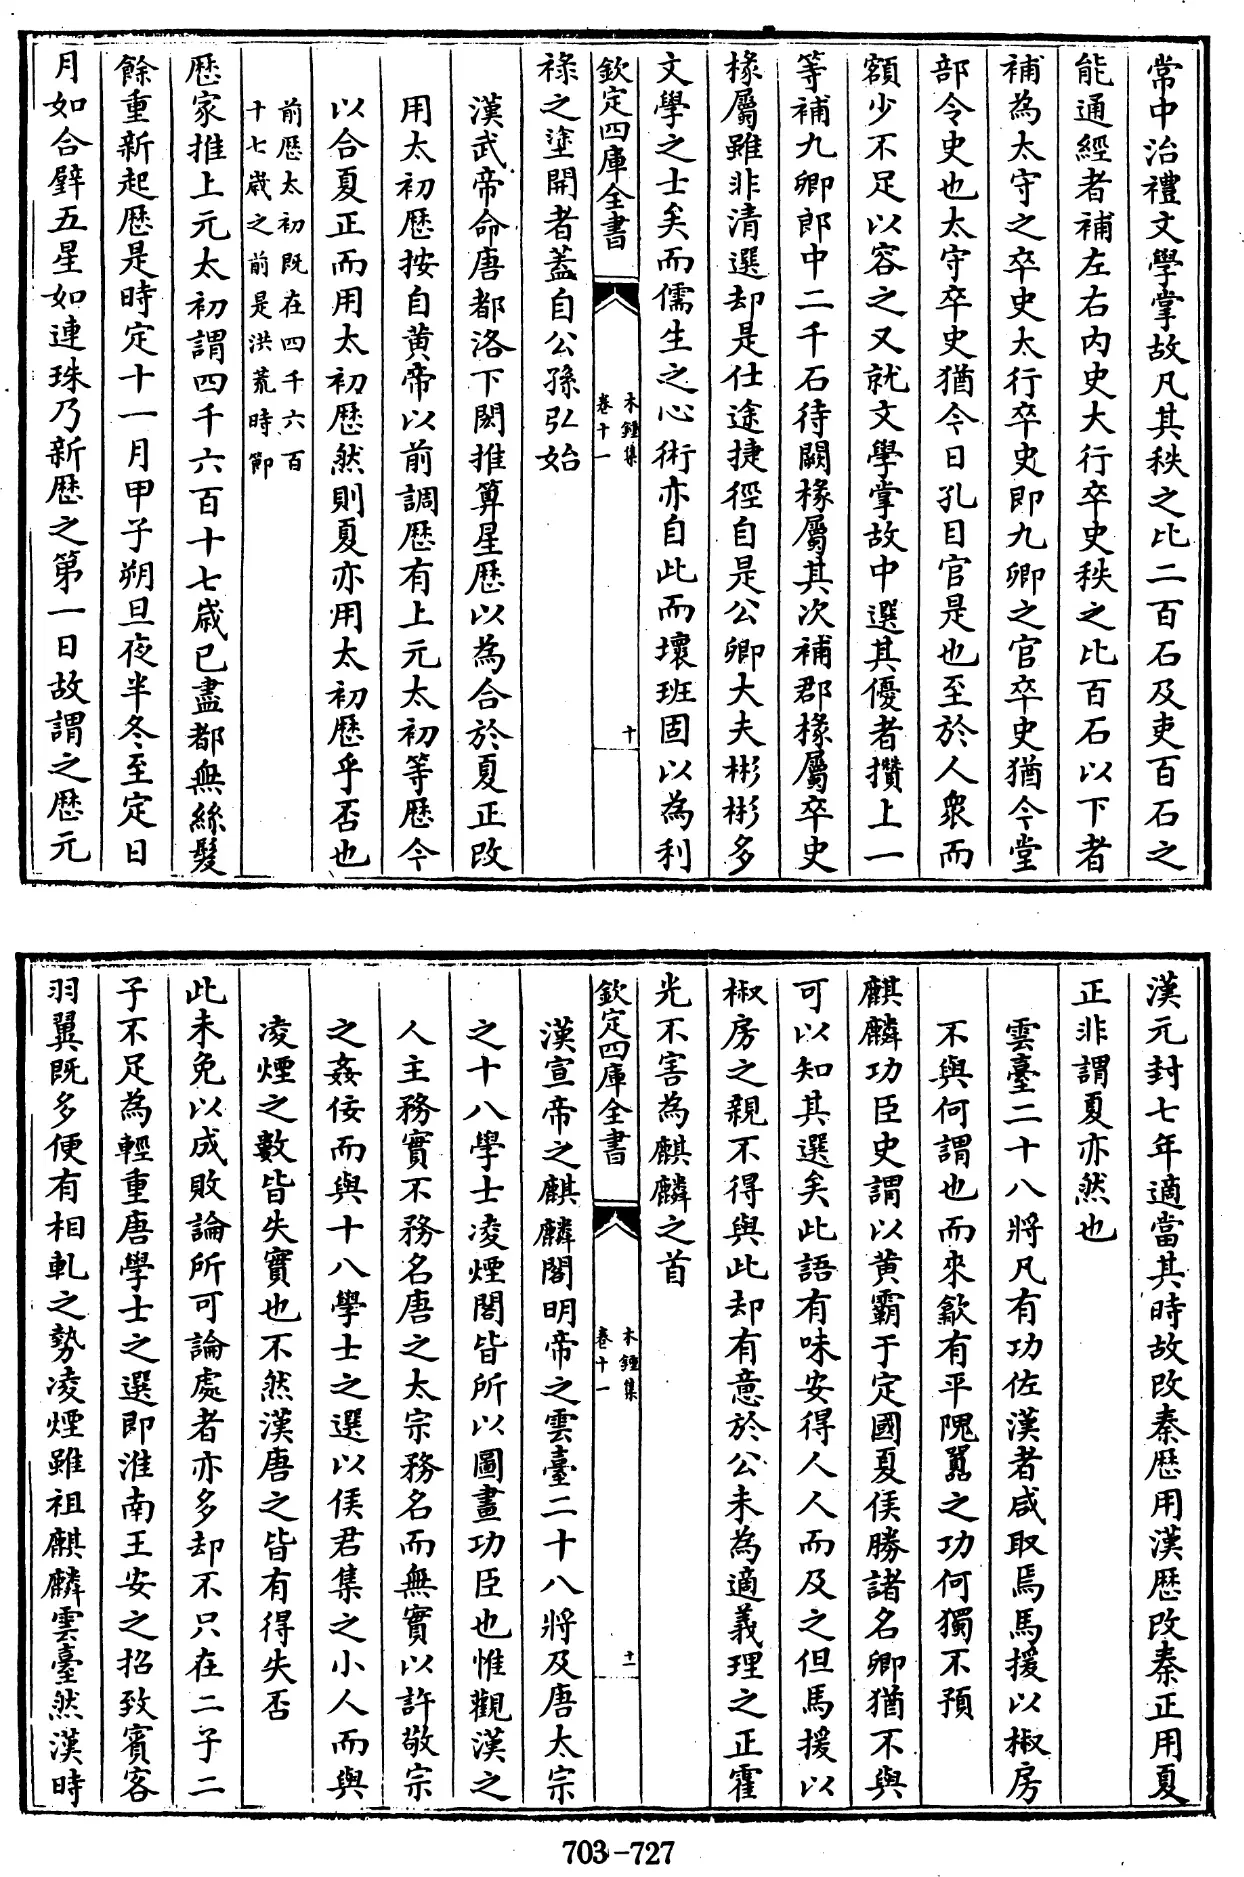 常中治禮文學掌故凡其秩之比二百石及吏百石之
能通經者補左右內史大行卒史秩之比百石以下者
補為太守之卒史太行卒史即九卿之官卒史猶今堂
部令史也太守卒史猶今日孔目官是也至於人衆而
額少不足以容之又就文學掌故中選其優者攢上一
等補九卿郎中二千石待闕椽屬其次補郡椽屬卒史
椽屬雖非清選却是仕途捷徑自是公卿大夫彬彬多
文學之士矣而儒生之心術亦自此而壞班固以為利
欽定四庫全書
木鍾集
卷十一
十
祿之塗開者蓋自公孫弘始
漢武帝命唐都洛下閎推算星歴以為合於夏正改
用太初歴按自黄帝以前調歴有上元太初等歴今
以合夏正而用太初歴然則夏亦用太初歴乎否也
前歴太初既在四千六百
十七歲之前是洪荒時節
歴家推上元太初謂四千六百十七歲已盡都無絲髮
餘重新起歴是時定十一月甲子朔旦夜半冬至定日
月如合璧五星如連珠乃新歴之第一日故謂之歴元
漢元封七年適當其時故改秦歴用漢歴改秦正用夏
正非謂夏亦然也
雲臺二十八將凡有功佐漢者咸取焉馬援以椒房
不與何謂也而來歙有平隗囂之功何獨不預
麒麟功臣史謂以黄霸于定國夏侯勝諸名卿猶不與
可以知其選矣此語有味安得人人而及之但馬援以
椒房之親不得與此却有意於公未為適義理之正霍
光不害為麒麟之首
欽定四庫全書
木鍾集
卷十一
十一
漢宣帝之麒麟閣明帝之雲臺二十八將及唐太宗
之十八學士凌煙閣皆所以圖畫功臣也惟觀漢之
人主務實不務名唐之太宗務名而無實以許敬宗
之姦佞而與十八學士之選以侯君集之小人而與
凌煙之數皆失實也不然漢唐之皆有得失否
此未免以成敗論所可論處者亦多却不只在二子二
子不足為輕重唐學士之選即淮南王安之招致賓客
羽翼既多便有相軋之勢凌煙雖祖麒麟雲臺然漢時
703-727